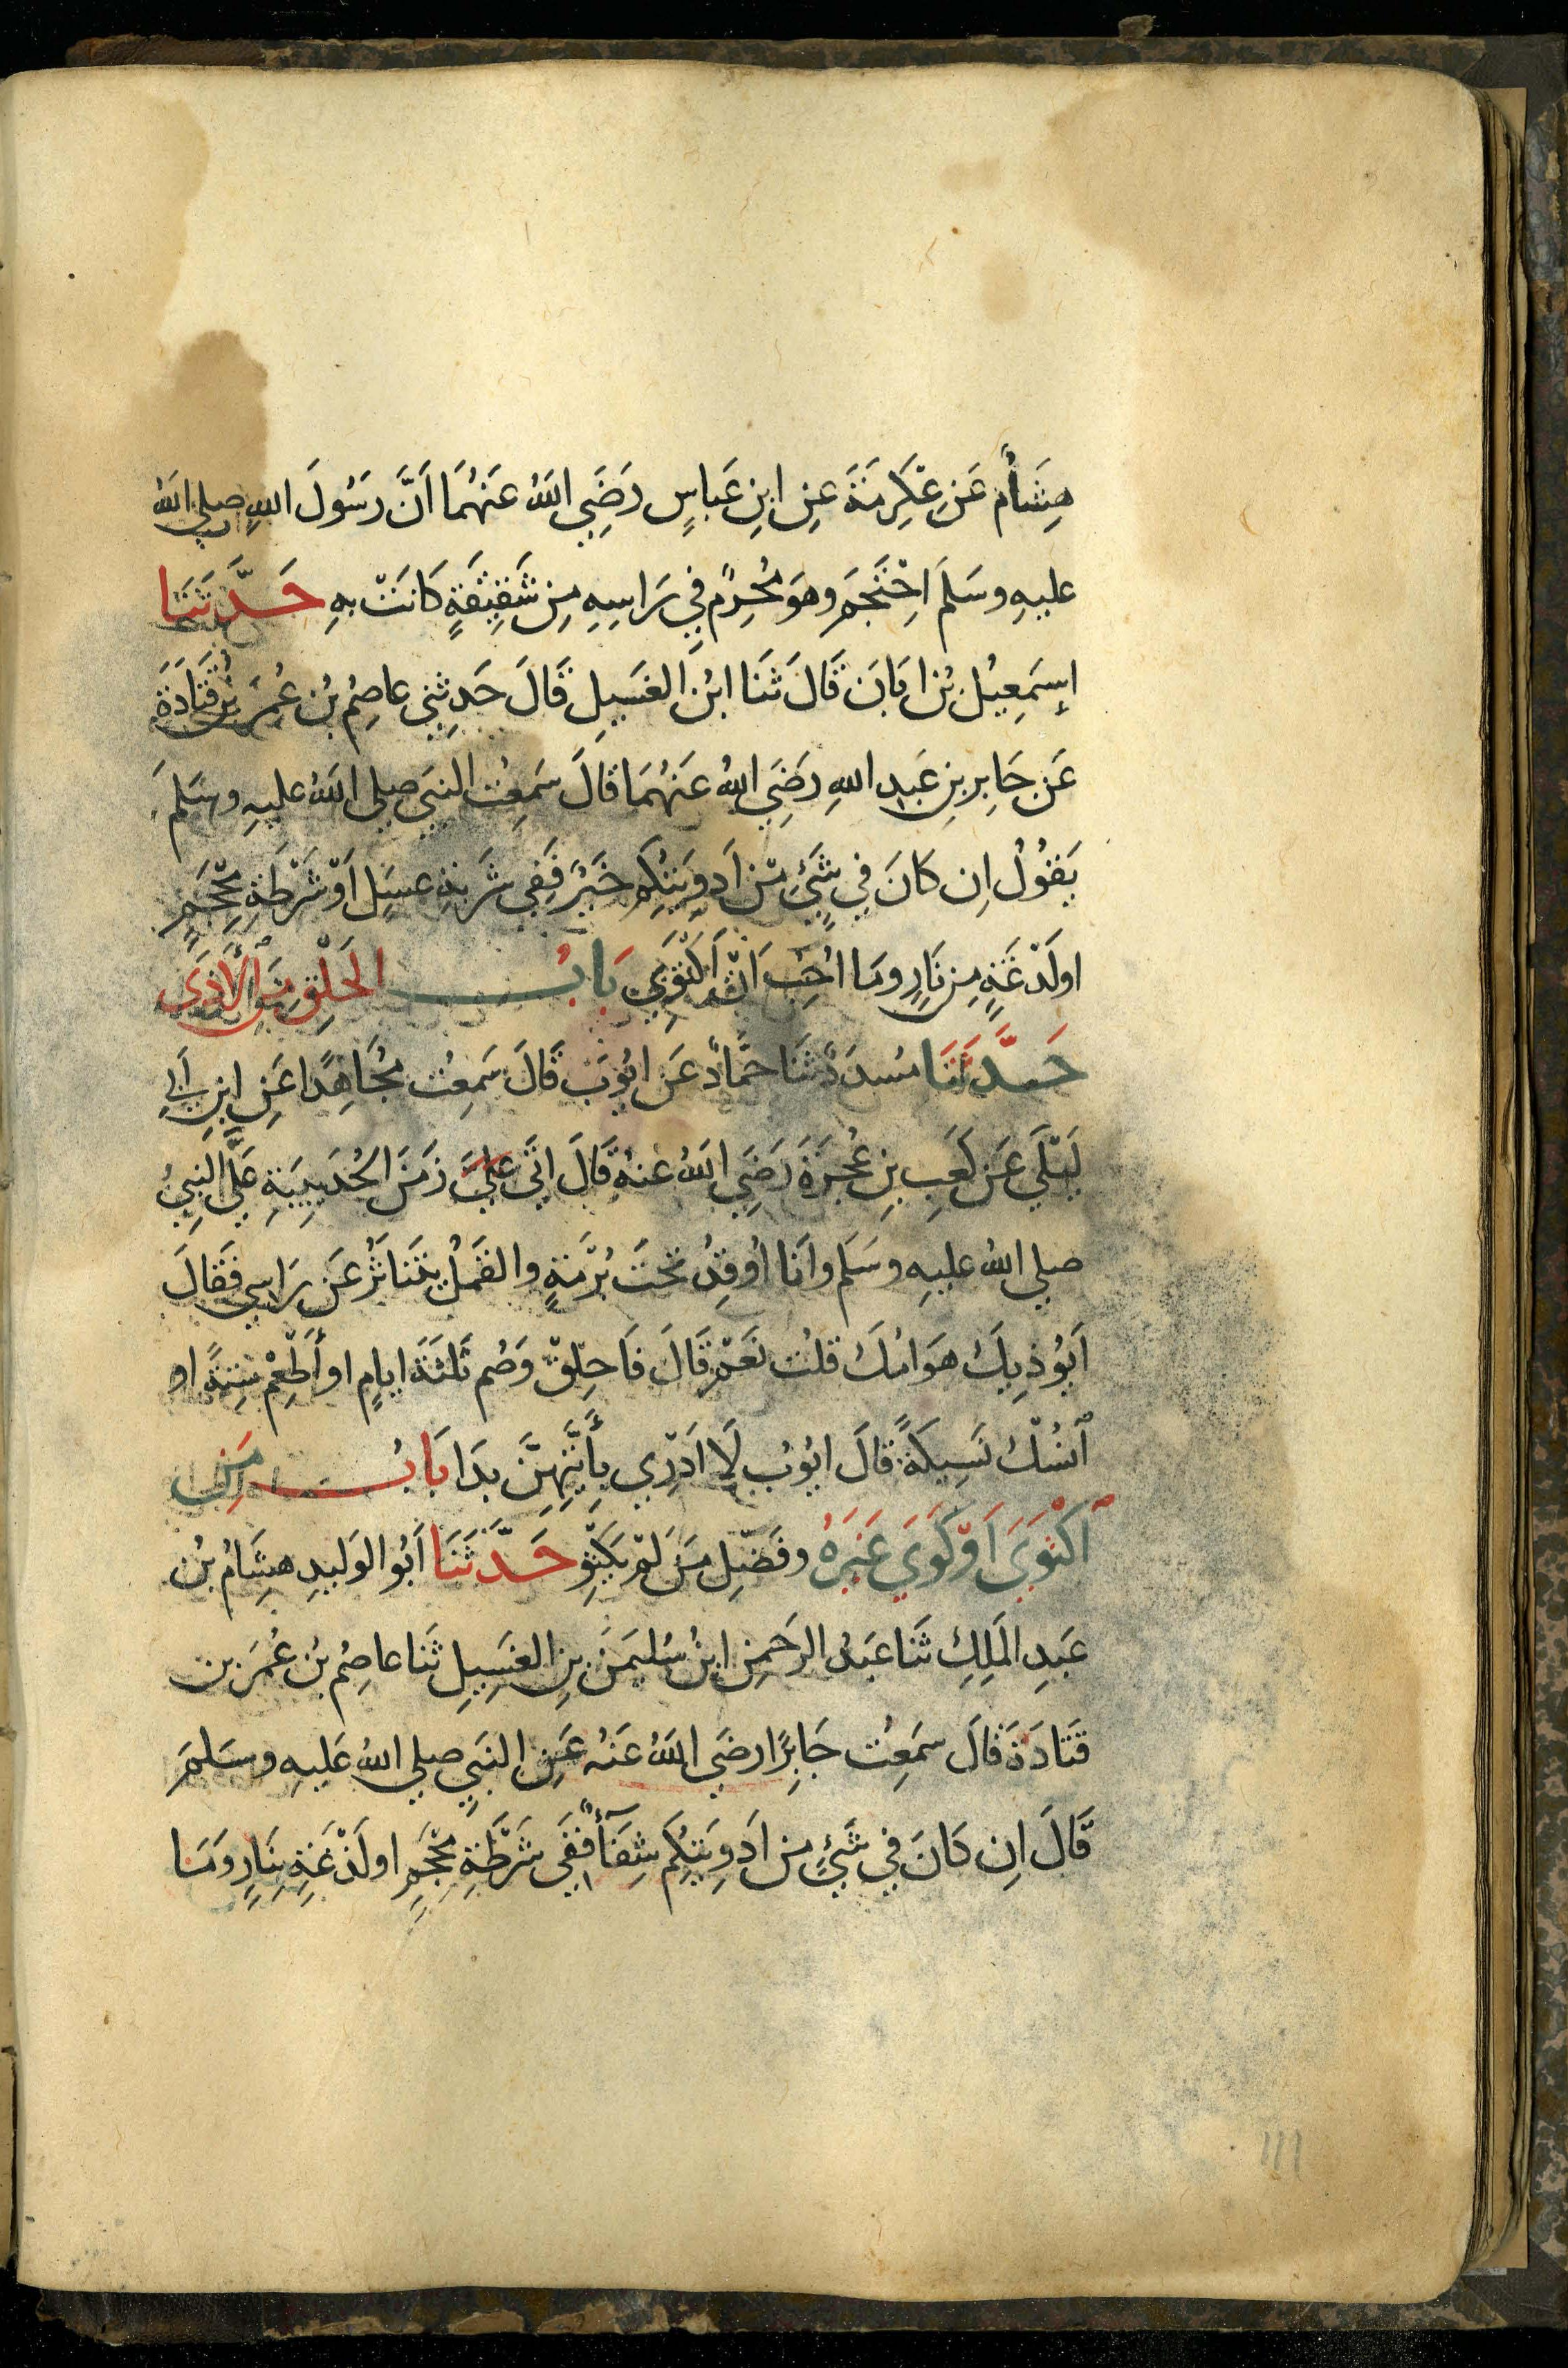 هِشَامٌ عَنِ عِكْرِمَةَ عَنِ ابنِ عَباسٍ رَضِيَ اللهُ عَنهُمَا اَنَّ رسُولَ اللهِ صلى اللهُ
عليهِ وسَلمَ احْتَجَمَ وهوَ مُحْرِمٌ فِي رَاسِهِ مِن شَقِيقَةٍ كَانَتْ بهِ حَدَّثَنَا
إسمَعِيلُ بنُ ابَانَ قَالَ ثَنَا ابنُ الغَسِيلِ قَالَ حَدثنِي عاصِمُ بنُ عُمَرَ بْنِ قَتَادَةَ
عَن جَابِرِ بنِ عَبدِ اللهِ رَضِيَ اللهُ عَنهُمَا قَالَ سَمِعْتُ النبيَ صلى اللهُ عليهِ وسَلمَ
يَقُولُ اِن كَانَ فِي شَيْءٍ مِّن اَدوِيَتِكُم خَيْرٌ فَفِي شَربَةِ عسَلٍ اَوْ شَرْطَةِ مِحْجَمٍ
اولَذْعَةٍ مِن نَارٍ ومَا اُحِبُّ اَنْ اَكْتَوِيَ بَابُ الحَلْقِ مِنَ ٱلْأَذَى
حَدَّثَنَا مُسَدَدٌ ثنَا حَمَّادٌ عَن ايُوبَ قَالَ سَمِعْتُ مُجَاهِدًا عَنِ ابنِ اَبِي
لَيْلَى عَن كَعبِ بنِ عُجْرَةَ رَضِيَ اللهُ عنهُ قَالَ اتَى عَلَيَّ زَمَنَ الحُدَيبِيَةِ عَلَيَّ النبِيُ
صلى اللهُ عليهِ وسَلم وانَا اُوقِدُ تَحْتَ بُرْمَةٍ والقَمْلُ يتَنَاثَرُ عَن رَاسِي فَقَالَ
اَيُوذِيكَ هَوَامُكَ قلتُ نَعَمْ قَالَ فَاحلِقْ وَصُم ثَلثَةَ ايامٍ او أَطْعِمْ سِتةً او
ٱنْسُكْ نَسِيكَةً قَالَ ايُوبُ لَا اَدْرِي بِأَيَّتِهِنَّ بدَا بَابُ مَنِ
ٱكْتَوَى اَوْ كَوَى غَيرَهُ وفَضْلِ مَن لَمْ يَكْتَوِ حَدَّثَنَا اَبُو الوَليدِ هِشَامُ بنُ
عَبدِ المَلِكِ ثَنا عَبدُ الرَحمنِ ابنُ سُليمَنَ بنِ الغسِيلِ ثَنا عاصِمُ بنُ عُمَرَ بن
قَتَادَةَ قَالَ سَمِعْتُ جَابِرًا رضَى اللهُ عَنهُ عَنِ النبيِ صلى اللهُ عَليهِ وسَلمَ
قَالَ اِن كَانَ فِي شَيْءٍ مِن اَدوِيَتِكُم شِفَآءٌ فَفِي شَرْطَةِ مِحْجَمٍ اولَذْعَةٍ بِنَارٍ ومَا
١١١